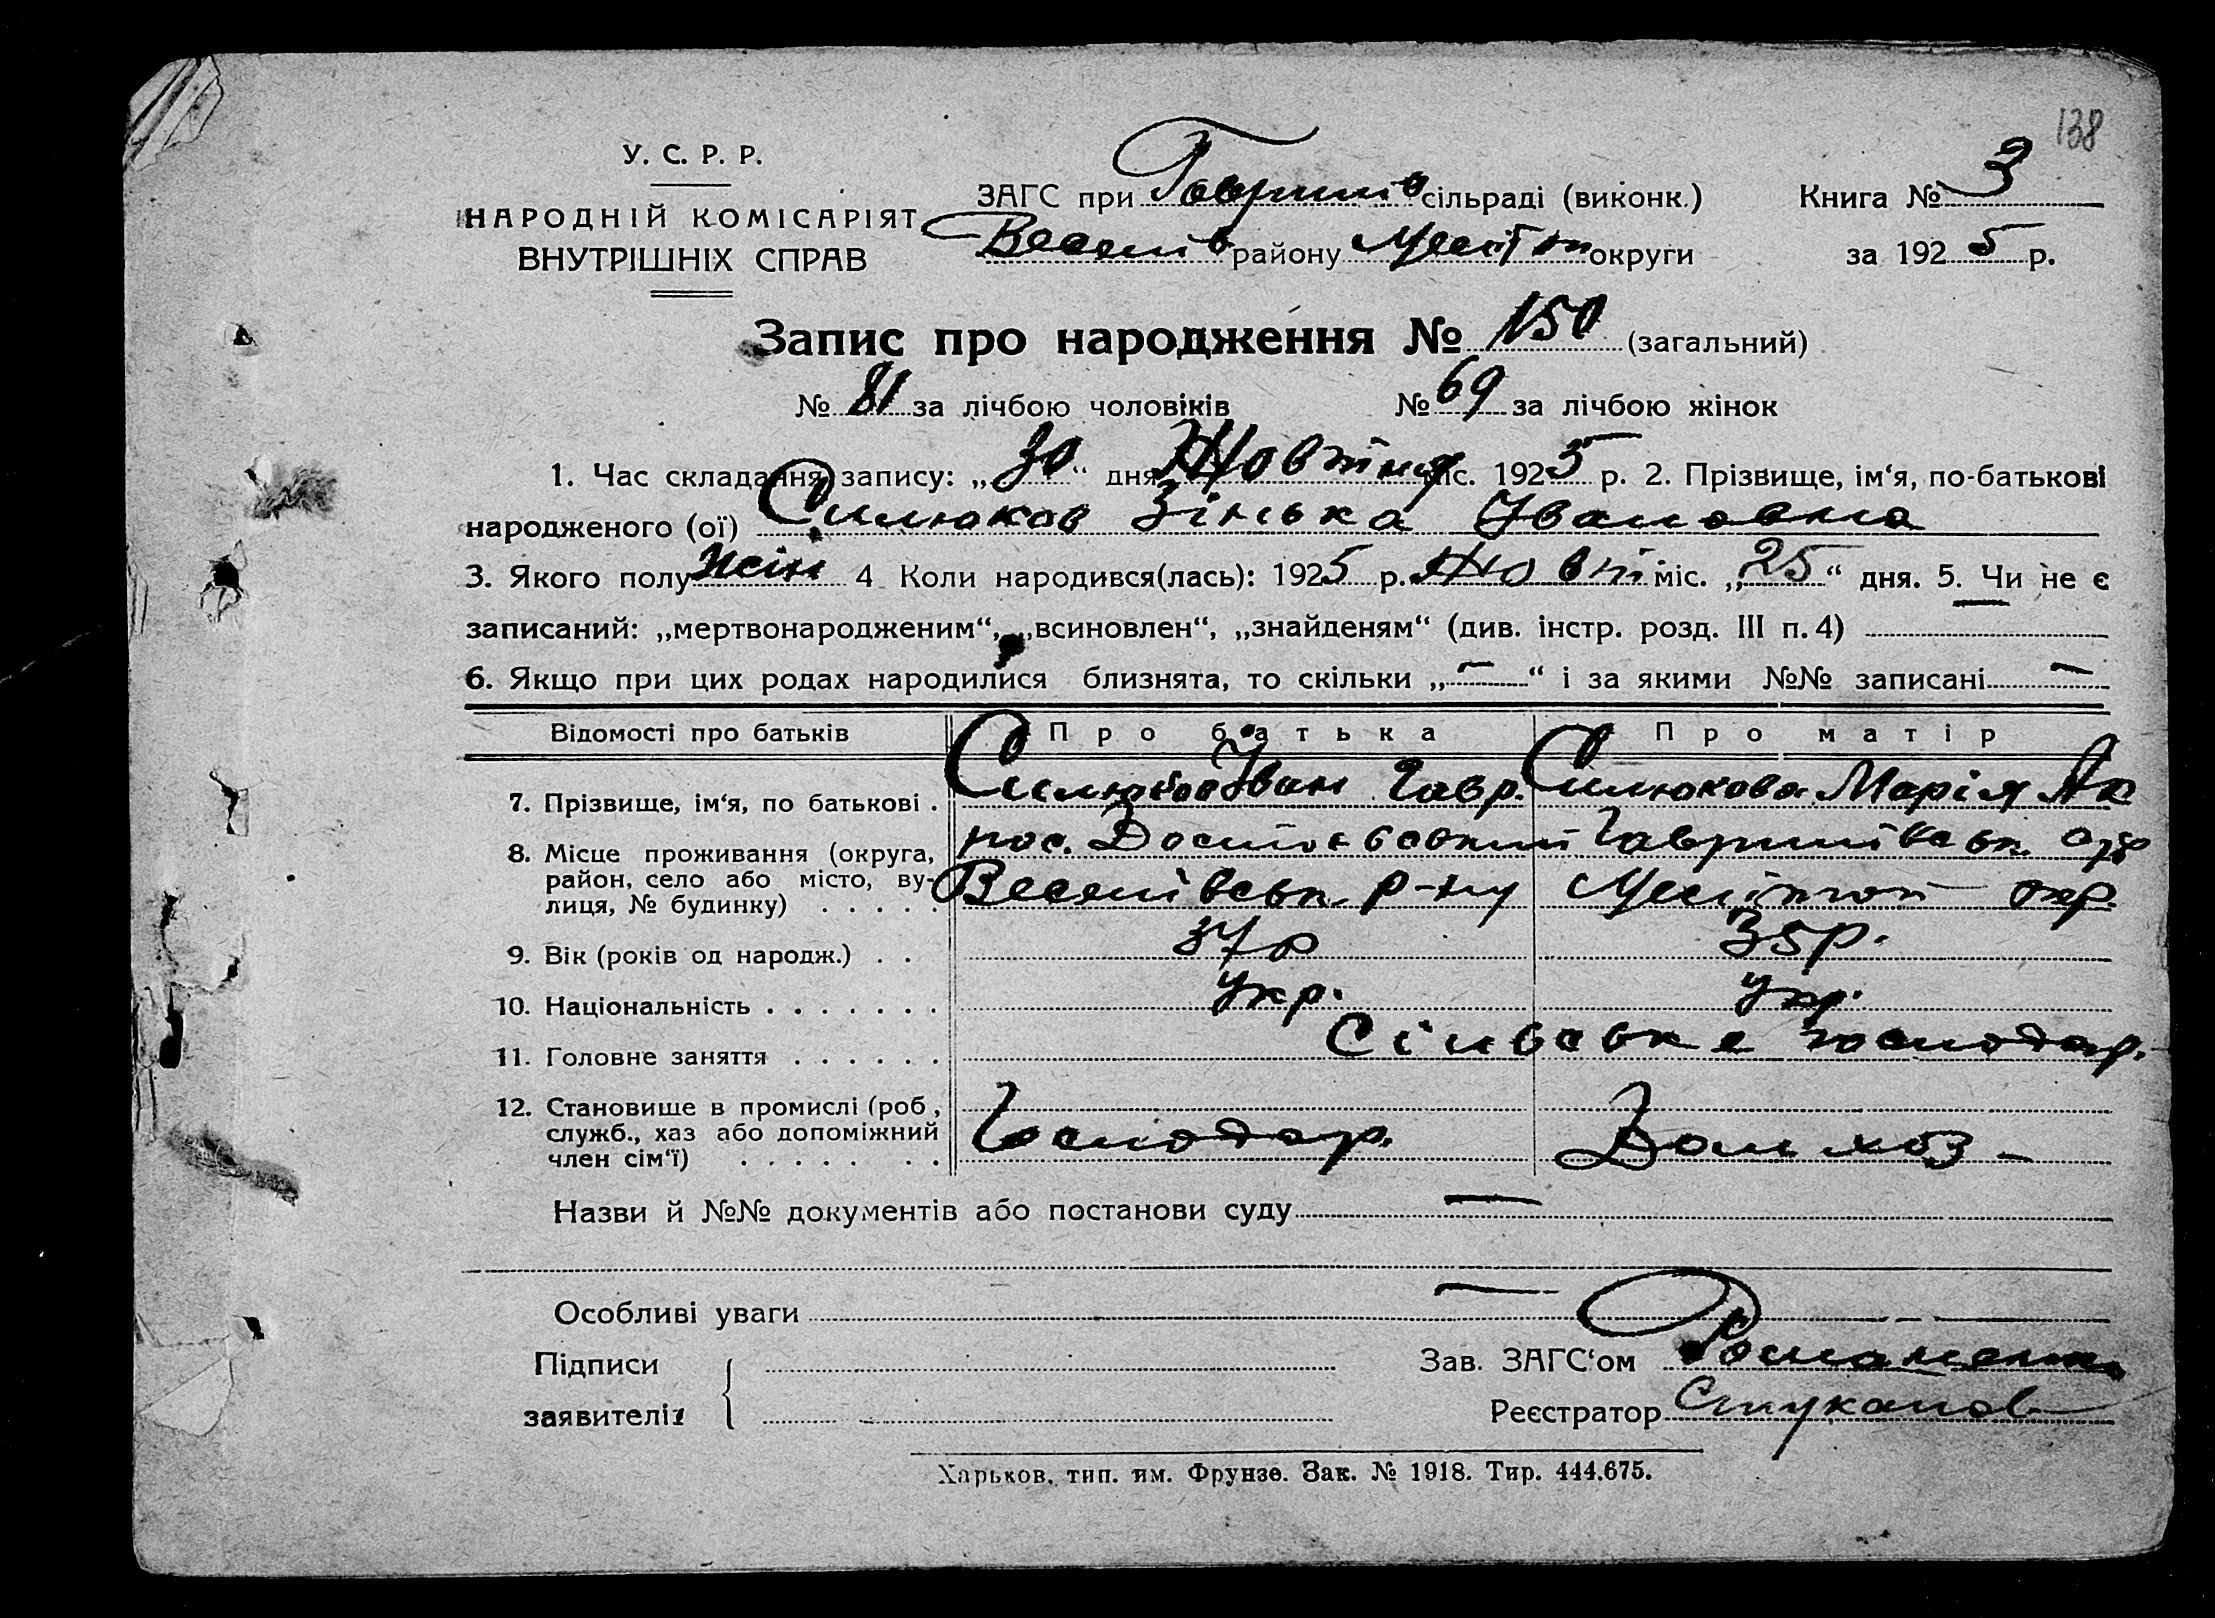 138
У. С. Р. Р.
НАРОДНІЙ КОМІСАРІЯТ
ВНУТРІШНІХ СПРАВ
ЗАГС при Гаврилів сільраді (виконк.)
Книга № 3
Веселів району Меліт округи
за 1925 р.
Запис про народження № 150 (загальний)
№ 81 за лічбою чоловіків № 69 за лічбою жінок
1. Час складання запису: „30“ дня Жовтня міс. 1925 р. 2. Прізвище, ім‘я, по-батькові
народженого (ої) Силюков Зінька Івановна
3. Якого полу жін 4 Коли народився(лась): 1925 р. Жовт міс. „25“ дня. 5. Чи не є
записаний: „мертвонародженим“, „всиновлен“, „знайденям“ (див. інстр. розд. III п. 4)
6. Якщо при цих родах народилися близнята, то скільки „—“ і за якими №№ записані —
Відомості про батьків Про батька Про матір
7. Прізвище, ім‘я, по батькові . Силюков Іван Гавр. Силюкова Марія Як
8. Місце проживання (округа, район, село або місто, вулиця, № будинку) . . . . . пос. Достоєвський Гаврилівськ.
Веселівськ. р-ну Мелітоп окр.
9. Вік (років од народж.) . . 37 р 35 р.
10. Національність . . . . . . . укр. укр.
11. Головне заняття . . . . . . Сільське господар.
12. Становише в промислі (роб, служб., хаз або допоміжний член сім‘ї) . . . . . . . Господар. Дом хоз —
Назви й №№ документів або постанови суду —
Особливі уваги —
Підписи
заявителів
Зав. ЗАГС‘ом Романенко
Реєстратор Стуканов
Харьков, тип. им. Фрунзе. Зак. № 1918. Тир. 444.675.